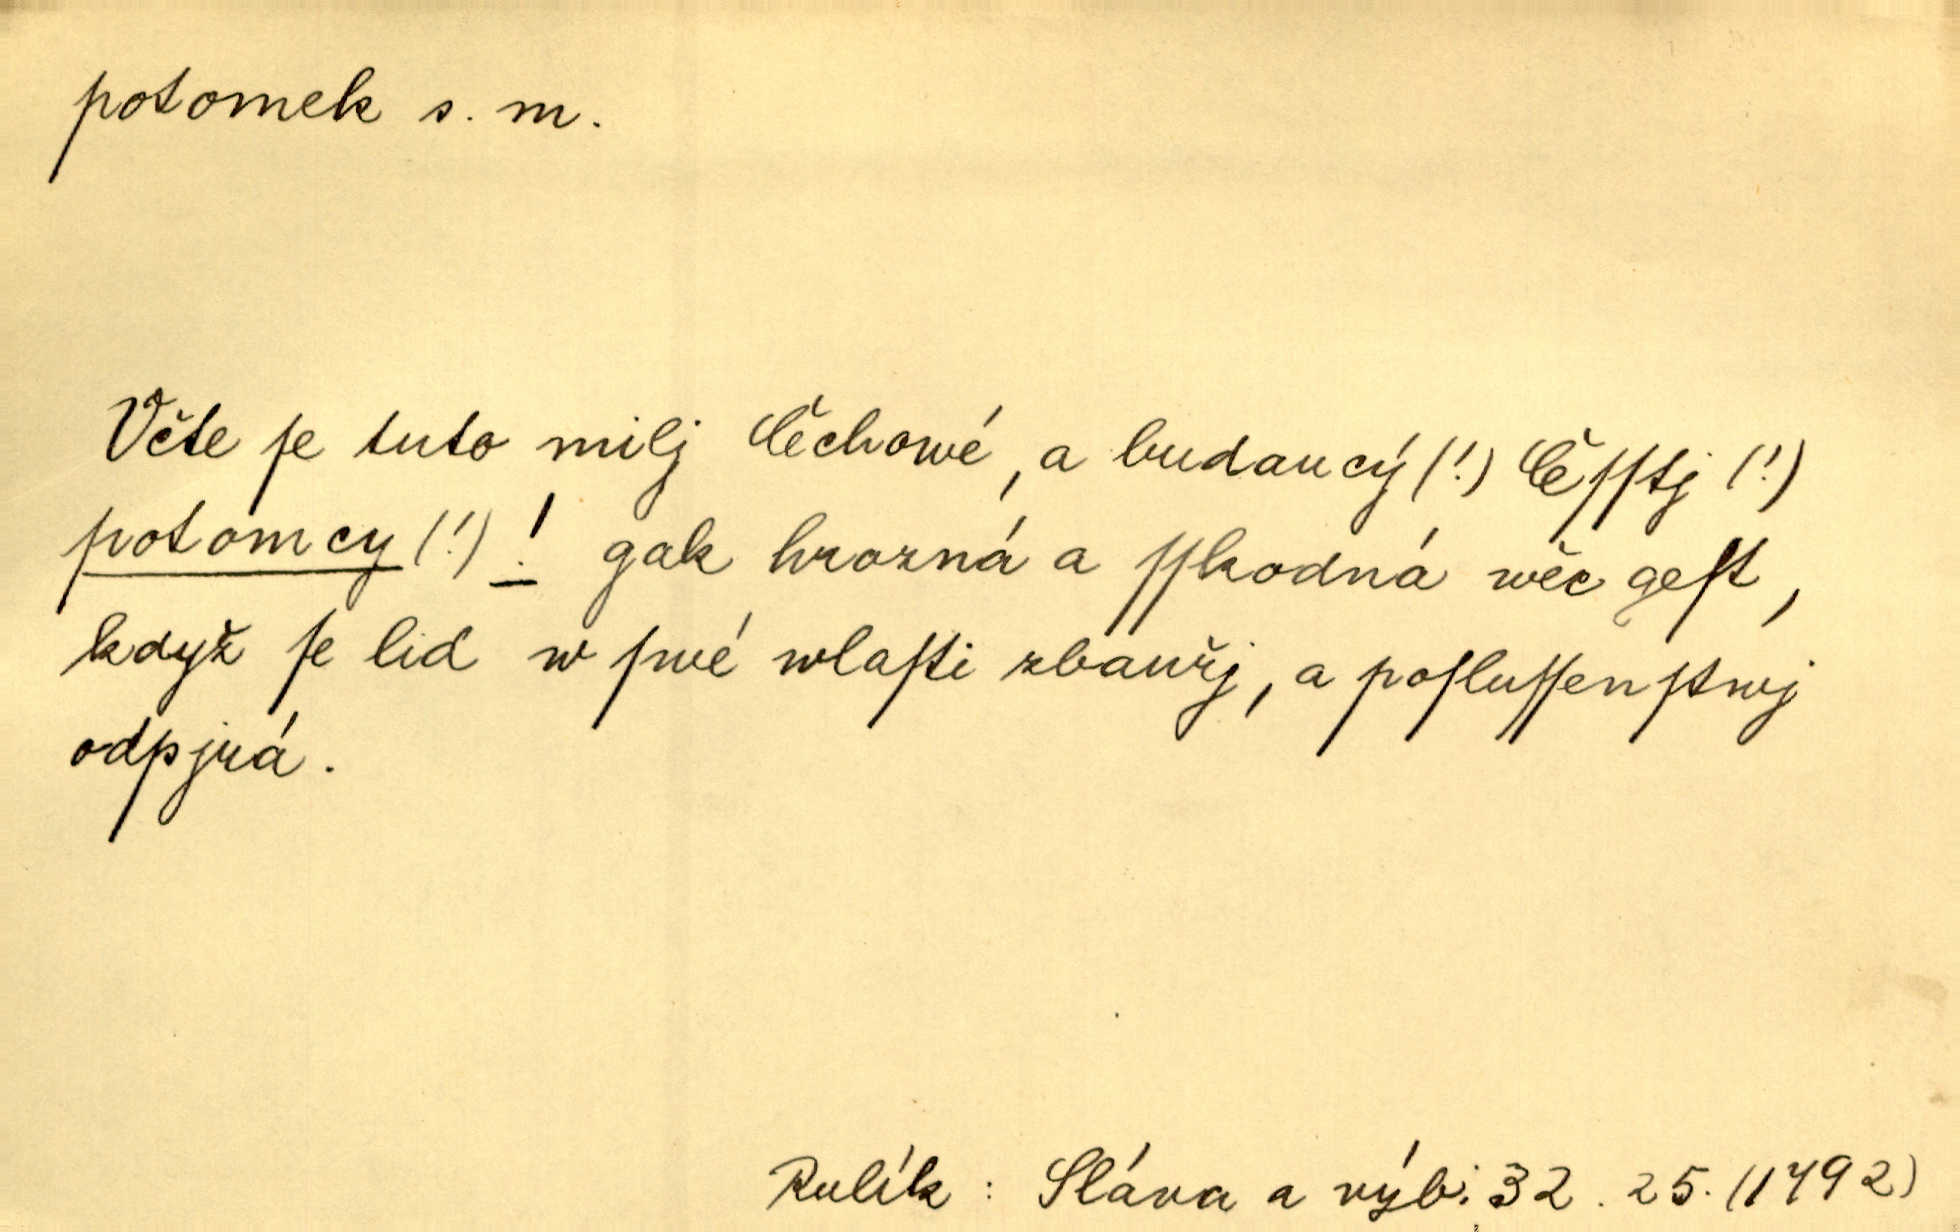 potomek s. m.
Včte ſe tuto milj Čěchowé, a budaucý (!) Čěſſtj (!)
potomcy (!) ! gak hrozná a ſſkodná wěc geſt,
když ſe lid w ſwé wlaſti zbauřj, a poſluſſenſtwj
odpjrá.
Rulík: Sláva a výb. 32. 25. (1792)